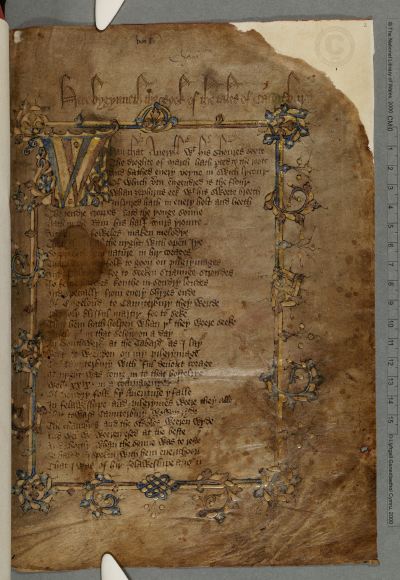 Here bygynneth the Book of the tales of Caunterbury
Whan that Aueryll wt his shoures soote
The droghte of March hath perced to the roote
And bathed euery veyne in swich lycour
Of which vertu engendred is the flour
Whan zephirus eek wt his sweete breeth
Inspired hath in euery holt and heeth
The tendre croppes and the yonge sonne
Hath in the Ram his half cours yronne
foweles maken melodye
al the nyght with open Iye
nature in hir corages
folk to goon on pilgrymages
for to seeken straunge strondes
To ferne halwes kouthe in sondry londes
And specially from euery shyres ende
Of Engelond to Caunterbury they wende
The holy blisful martir for to seke
That hem hath holpen whan þt they weere seeke
in that seson on a day
In Southwerk at the Tabard as I lay
Redy to weenden on my pilgrymage
To Caunterbury with ful deuout corage
At nyght was come in to that hostelrye
Wel xxix in a compaignye
Of sondry folk by auenture yfalle
In felaweshipe and pilgrymes weere they alle
That toward Caunterbury wolden ryde
The chambres and the stables weeren wyde
And wel we weeren esed at the beste
And shortly whan the sonne was to reste
So hadde I spoken with hem euerichoon
That I was of hir felaweshipe anoon
© The National Library of Wales, 2000
CM 0
1
2
3
4
5
6
7
8
9
10
11
12
13
14
15
© Llyfrgell Genedlaethol Cymru, 2000